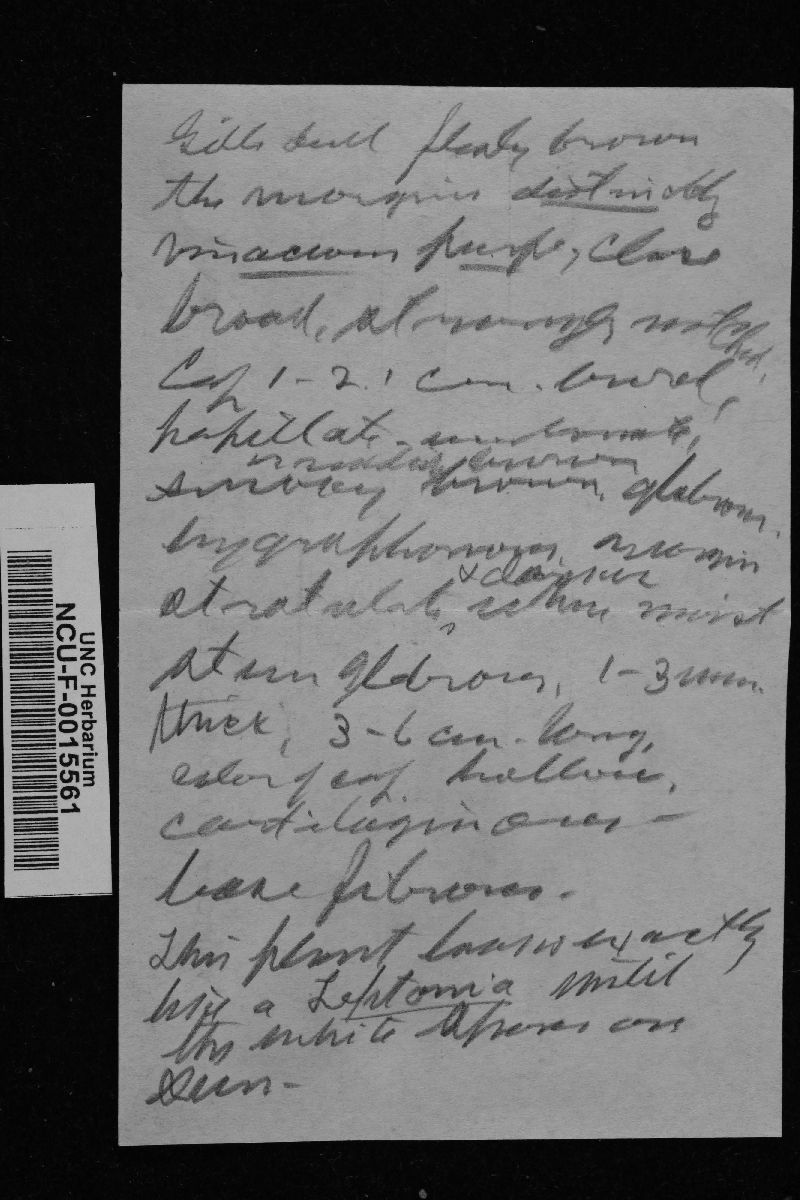 Gills dull fleshy brown
the margins distinctly
vinaceous purple, close
broad, strongly notched.
Cap 1-2.1 cm. broad,
papillate-umbonate,
or reddish brown
smoky brown, glabrous.
hygrophonous, margin
& darker
striatulate, when moist
stem glabrous, 1-3 mm.
thick, 3-6 cm. long,
color of cap, hollow,
cartilaginous -
base fibrous -
This plant looks exactly
like a Leptonia until
the white spores are
seen -
UNC Herbarium
NCU-F-0015561